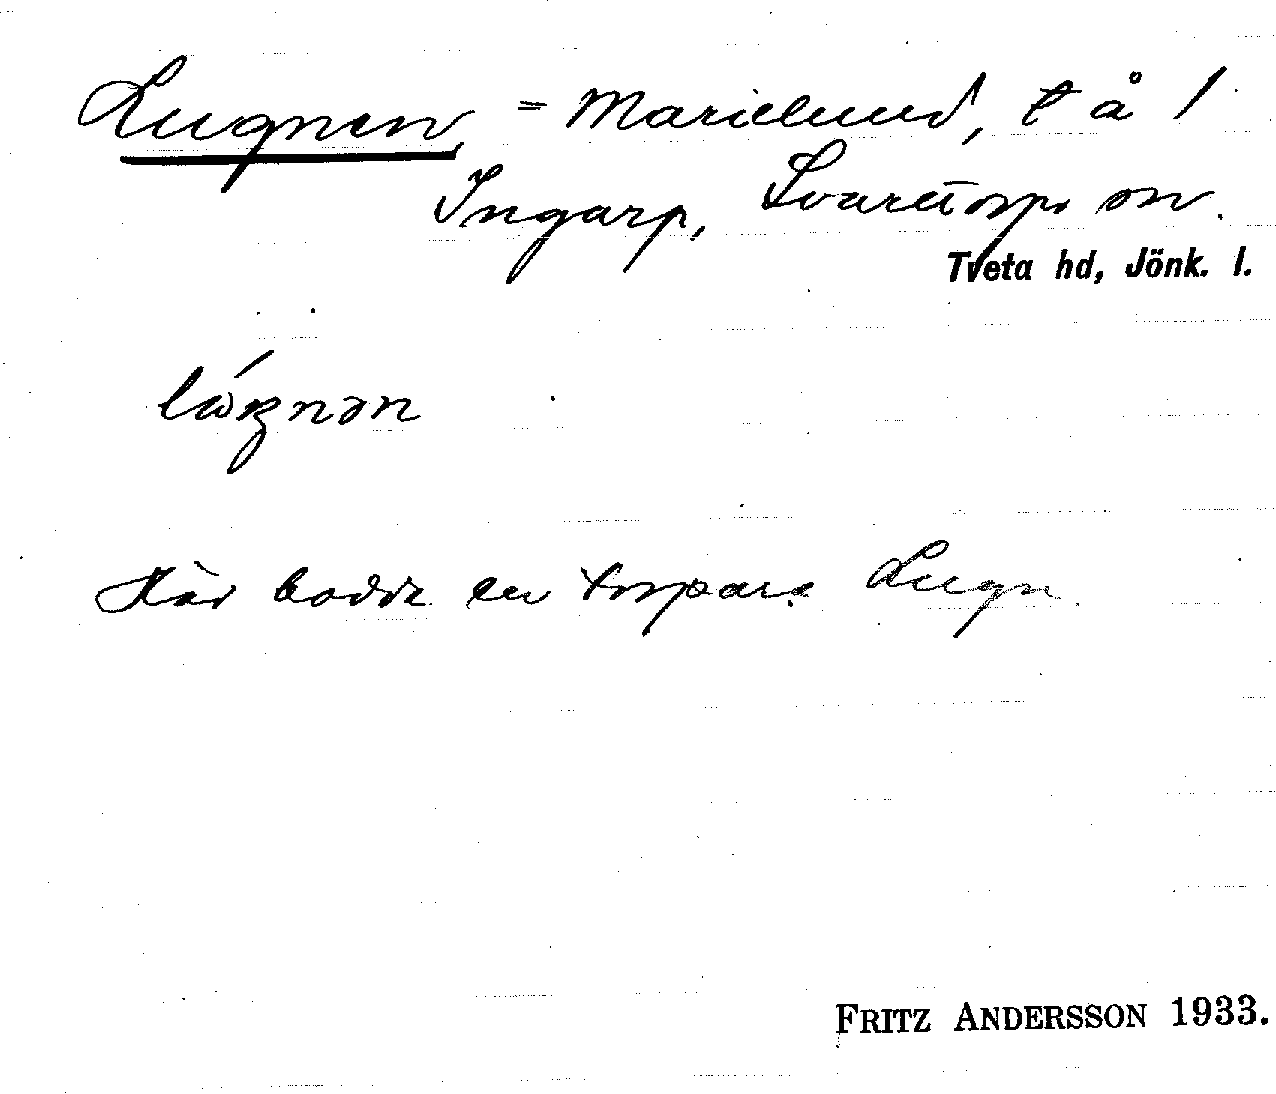 Lugnen, = Marielund, t å 1
Ingarp, Svarttorps sn.
Tveta hd, Jönk. l.
Här bodde en torpare Lugn.
FRITZ ANDERSSON 1933.